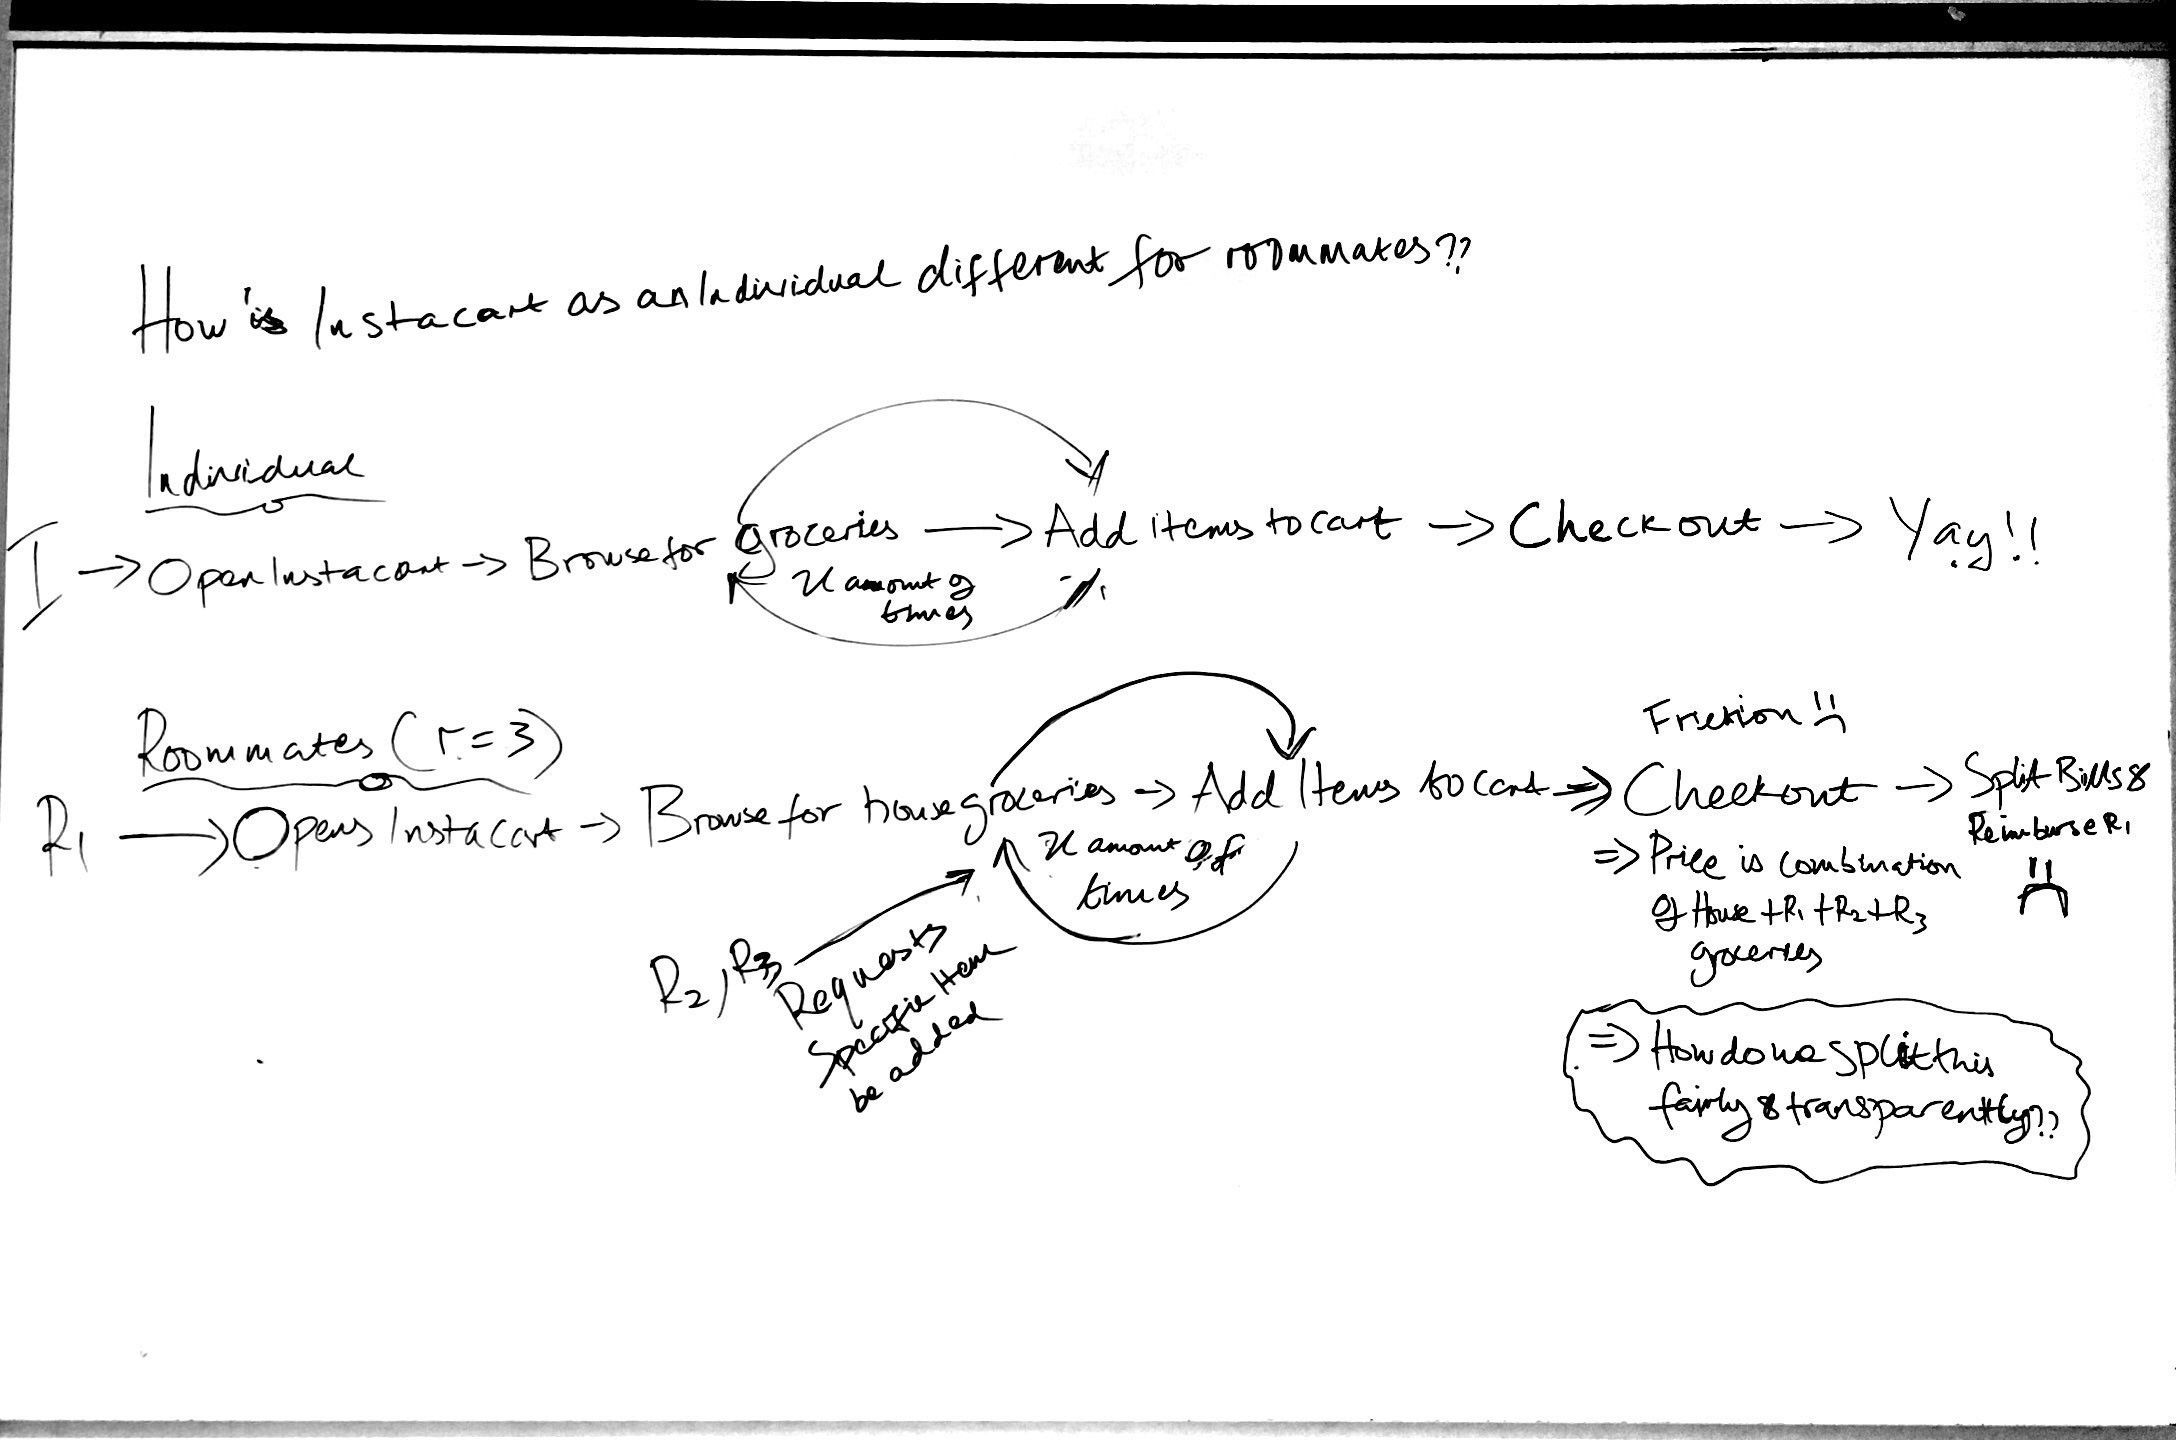 How is Instacart as an Individual different for roommates??
Individual
I → Open Instacart → Browse for groceries → Add items to cart → Checkout → Yay!!
x amount of
times
Friction
Roommates (r=3)
R1 → Opens Instacart → Browse for house groceries → Add Items to cart ⇒ Checkout → Split Bills &
Reimburse R1
x amount of
times
R2, R3
Requests
Specific Item
be added
⇒ Price is combination
of House + R1 + R2 + R3
groceries
⇒ How do we split this
fairly & transparently??